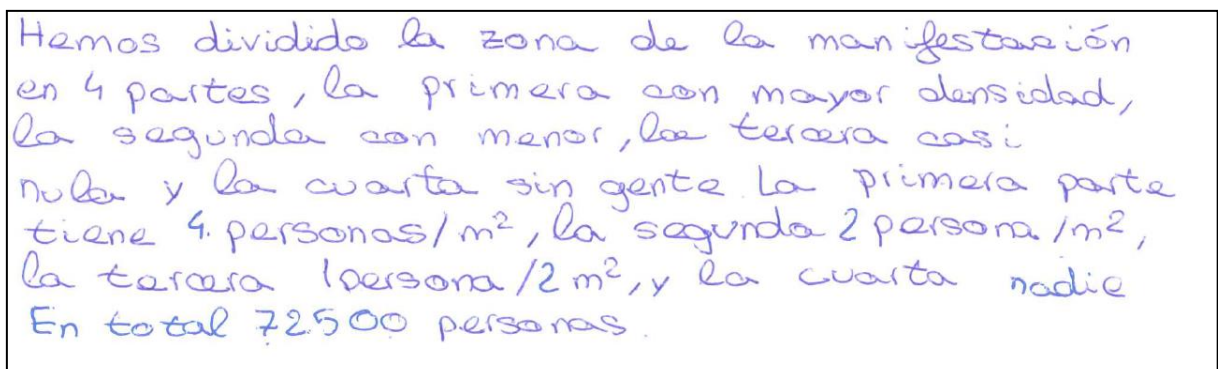 Hemos dividido la zona de la manifestación
en 4 partes, la primera con mayor densidad,
la segunda con menor, la tercera casi
nula y la cuarta sin gente. La primera parte
tiene 4 personas/m², la segunda 2 persona/m²,
la tercera 1persona/2 m², y la cuarta nadie
En total 72500 personas.